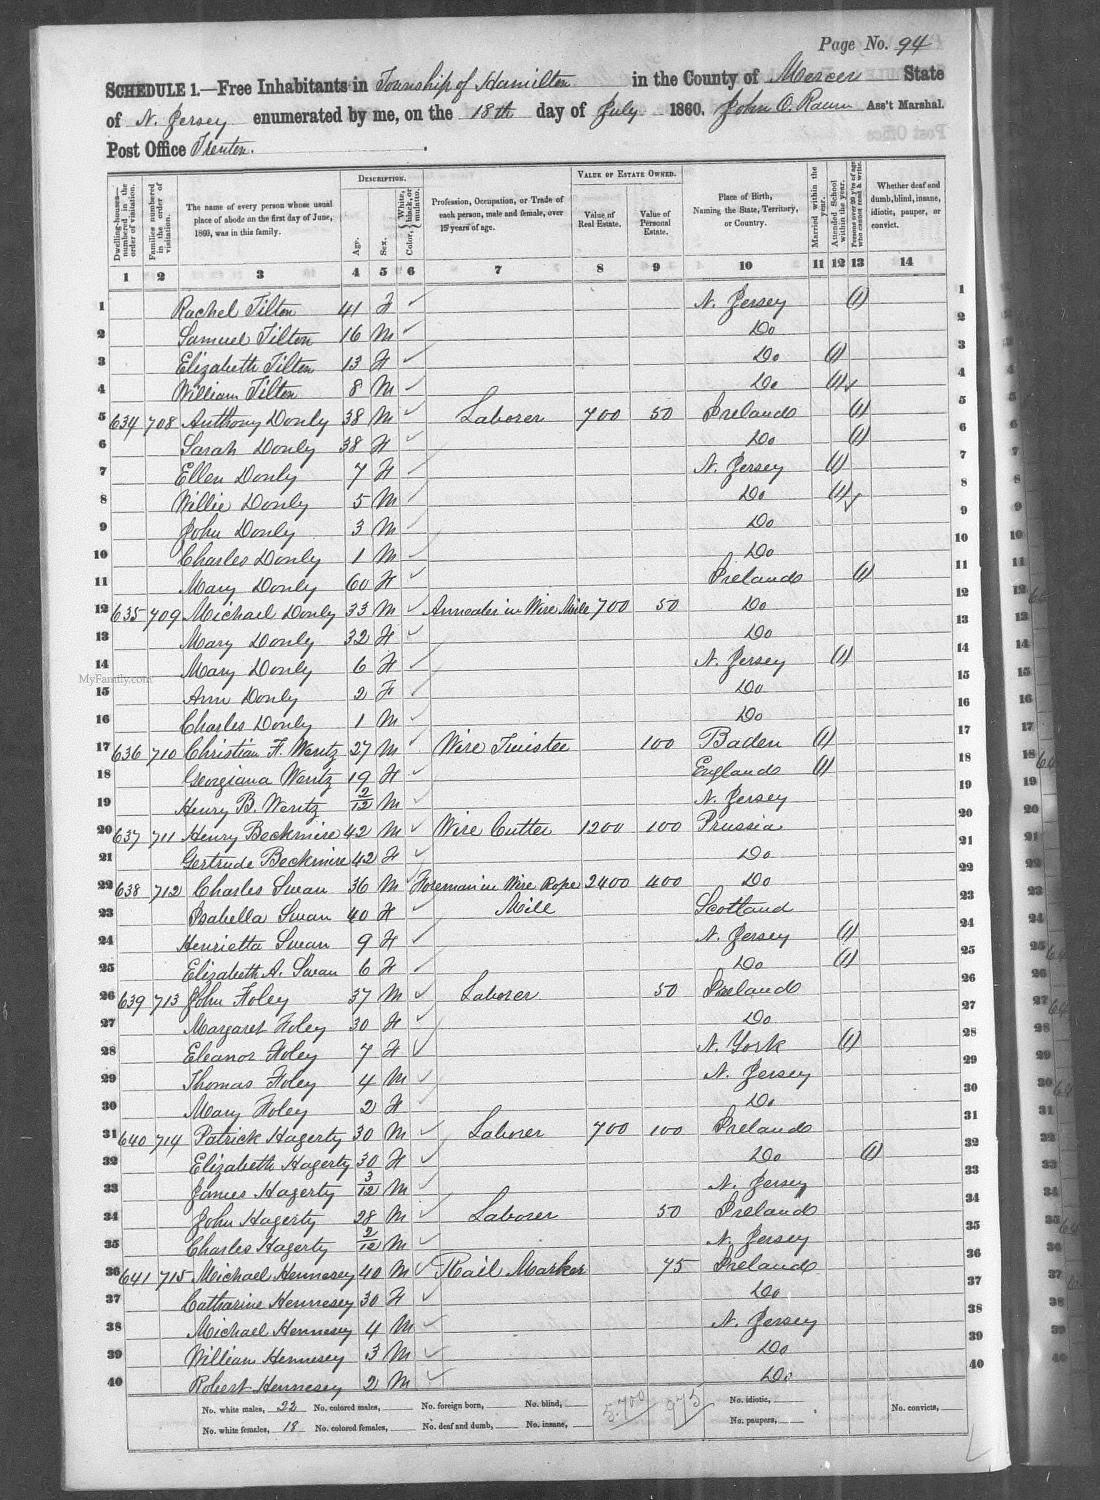 Page No. 94
SCHEDULE 1.—Free Inhabitants in Township of Hamilton in the County of Mercer State
of N. Jersey enumerated by me, on the 18th day of July 1860. John O. Raum Ass't Marshal.
Post Office Trenton.
Dwelling-houses—numbered in the order of visitation. Families numbered in the order of visitation. The name of every person whose usual place of abode on the first day of June, 1860, was in this family. DESCRIPTION. Age. Sex. Color, White, black, or mulatto. Profession, Occupation, or Trade of each person, male and female, over 15 years of age. VALUE OF ESTATE OWNED. Value of Real Estate. Value of Personal Estate. Place of Birth, Naming the State, Territory, or Country. Married within the year. Attended School within the year. Persons over 20 y'rs of age who cannot read & write. Whether deaf and dumb, blind, insane, idiotic, pauper, or convict.
1 2 3 4 5 6 7 8 9 10 11 12 13 14
1 Rachel Tilton 41 F ✓ N. Jersey (1) 1
2 Samuel Tilton 16 M ✓ Do 2
3 Elizabeth Tilton 13 F ✓ Do (1) 3
4 William Tilton 8 M ✓ Do (1) 4
5 634 708 Anthony Donly 38 M ✓ Laborer 700 50 Ireland (1) 5
6 Sarah Donly 38 F ✓ Do (1) 6
7 Ellen Donly 7 F ✓ N. Jersey (1) 7
8 Willie Donly 5 M ✓ Do (1) 8
9 John Donly 3 M Do 9
10 Charles Donly 1 M ✓ Do 10
11 Mary Donly 60 F ✓ Ireland (1) 11
12 635 709 Michael Donly 33 M ✓ Annealer in Wire Mill 700 50 Do 12
13 Mary Donly 32 F ✓ Do 13
14 Mary Donly 6 F ✓ N. Jersey (1) 14
MyFamily.com
15 Ann Donly 2 F ✓ Do 15
16 Charles Donly 1 M ✓ Do 16
17 636 710 Christian F. Wentz 27 M ✓ Wire Twister 100 Baden (1) 17
18 Georgiana Wentz 19 F ✓ England (1) 18
19 Henry B. Wentz 2/12 M ✓ N. Jersey 19
20 637 711 Henry Beckmire 42 M ✓ Wire Cutter 1200 100 Prussia 20
21 Gertrude Beckmire 42 F ✓ Do 21
22 638 712 Charles Swan 36 M ✓ Foreman in Wire Rope 2400 400 Do 22
23 Isabella Swan 40 F ✓ Mill Scotland 23
24 Henrietta Swan 9 F ✓ N. Jersey (1) 24
25 Elizabeth A. Swan 6 F ✓ Do (1) 25
26 639 713 John Foley 37 M ✓ Laborer 50 Ireland 26
27 Margaret Foley 30 F ✓ Do 27
28 Eleanor Foley 7 F ✓ N. York (1) 28
29 Thomas Foley 4 M ✓ N. Jersey 29
30 Mary Foley 2 F ✓ Do 30
31 640 714 Patrick Hagerty 30 M ✓ Laborer 700 100 Ireland 31
32 Elizabeth Hagerty 30 F ✓ Do (1) 32
33 James Hagerty 3/12 M ✓ N. Jersey 33
34 John Hagerty 28 M ✓ Laborer 50 Ireland 34
35 Charles Hagerty 2/12 M ✓ N. Jersey 35
36 641 715 Michael Hennesey 40 M ✓ Rail Marker 75 Ireland 36
37 Catharine Hennesey 30 F ✓ Do 37
38 Michael Hennesey 4 M ✓ N. Jersey 38
39 William Hennesey 3 M ✓ Do 39
40 Robert Hennesey 2 M ✓ Do 40
No. white males, 22 No. colored males, No. foreign born, No. blind, 5700 975 No. idiotic, No. convicts,
No. white females, 18 No. colored females, No. deaf and dumb, No. insane, No. paupers,